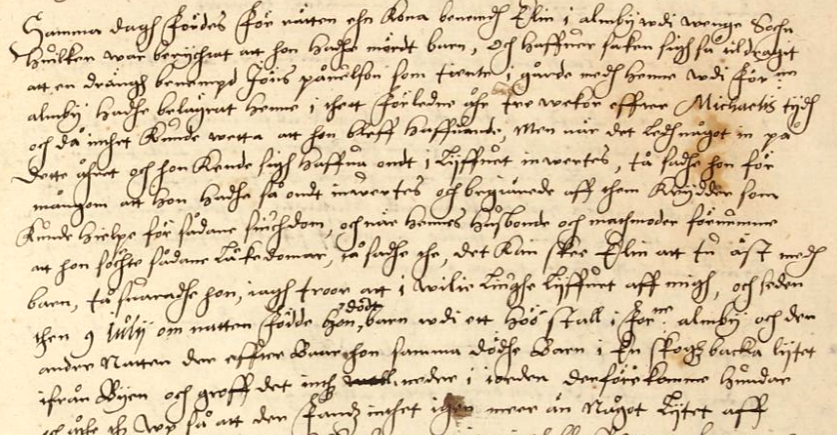 Samma dagh födes för rätten ehn Kona benemdh Elin i almby wdi wenge Sochn
Huilken war berychtat att hon hadhe mördt barn, och haffuer saken sigh så tildragit
att en drängh benempd Jöns påuelson som tiente i gårde medh henne wdi för:ne
almby hadhe belägrat henne i thett förledne åhr tre wekor effter Michaelis tijdh
och då inthet Kunde wetta att hon bleff haffuande, Men när det ledh något in på
dette åhret och hon Kende sigh haffua ondt i lijffuet inwertes, tå sadhe hon för
mångom att hon hadhe så ondt inwertes och begärede aff them Krydder som
Kunde hielpe för sådane siuchdom, och när hennes Husbonde och matmoder förnumme
att hon söchte sådane läkedomar, tå sadhe the, det Kan skee Elin att tu äst medh
barn, tå suaradhe hon, iagh troor att i wilie liughe lijffuet aff migh, och seden
then 9 Julij om natten födde hon dödt barn wdi ett höö stall i för:ne almby och den
andre Natten der effter Baar hon samma dödhe Barn i En skogh backa lijtet
ifrån Byen och groff det nedre i iorden derföre komme hundar
och åte th vp så att der fandz inthet igen meer än Något lijtet aff